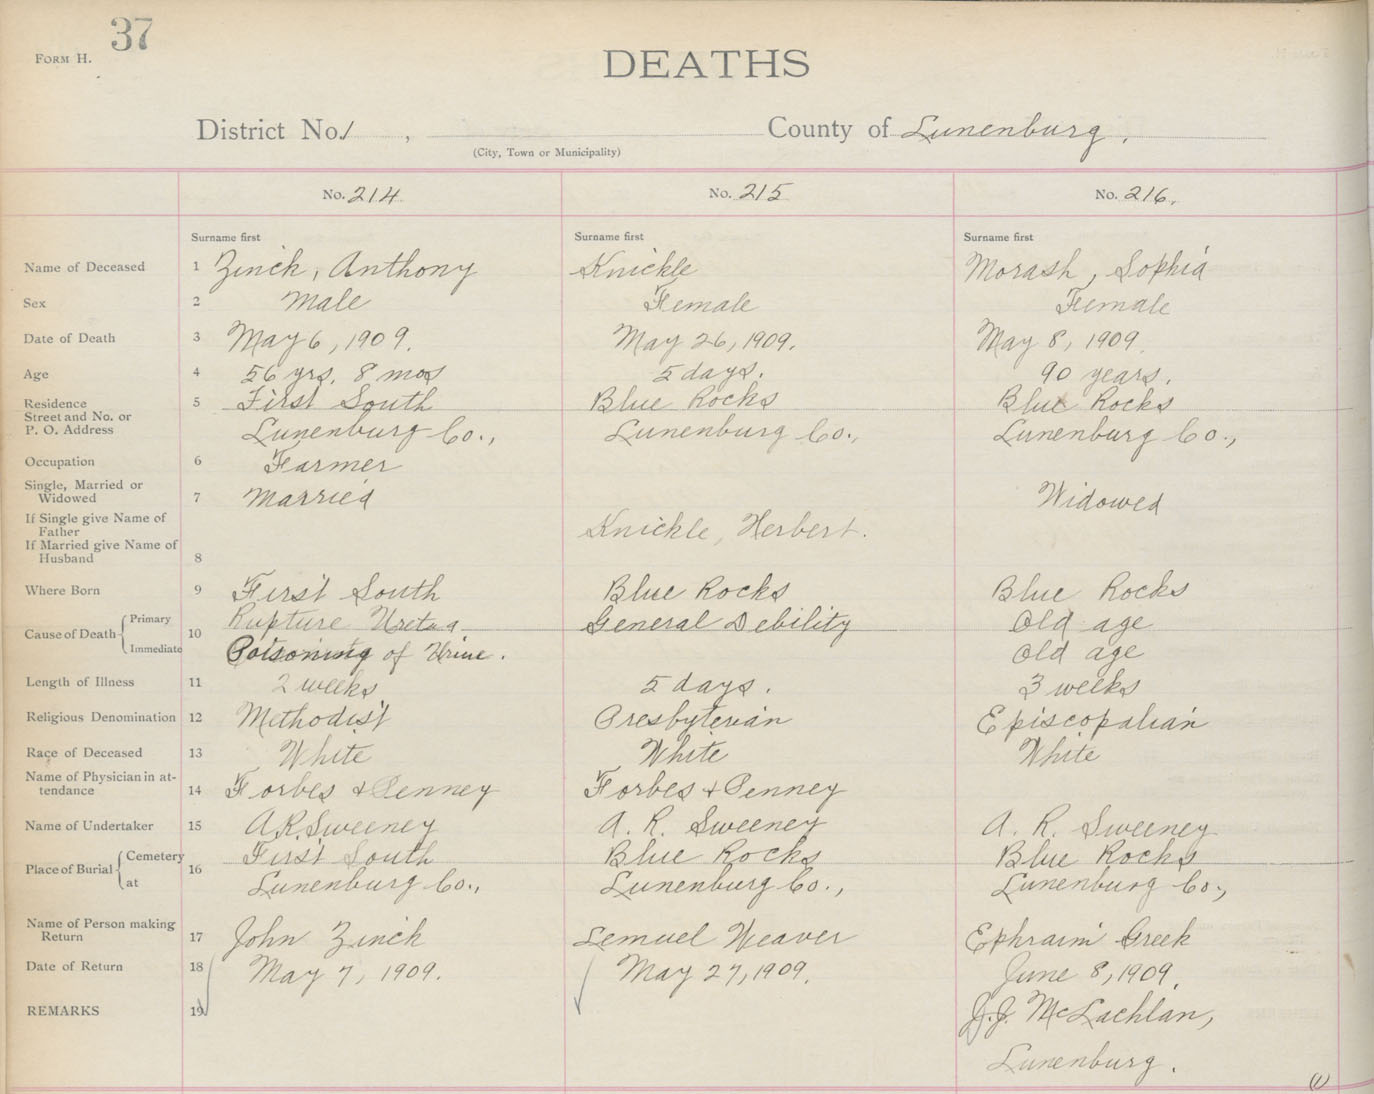 37
FORM H.
DEATHS
District No. 1 , County of Lunenburg.
(City, Town or Municipality)
No. 214 No. 215 No. 216.
Surname first Surname first Surname first
Name of Deceased 1 Zinck, Anthony Knickle Morash, Sophia
Sex 2 Male Female Female
Date of Death 3 May 6, 1909. May 26, 1909. May 8, 1909.
Age 4 56 yrs. 8 mos 5 days. 90 years.
Residence 5 First South Blue Rocks Blue Rocks
Street and No. or
P. O. Address Lunenburg Co., Lunenburg Co., Lunenburg Co.,
Occupation 6 Farmer
Single, Married or
Widowed 7 Married Widowed
If Single give Name of
Father Knickle, Herbert.
If Married give Name of
Husband 8
Where Born 9 First South Blue Rocks Blue Rocks
Cause of Death 10 Primary Rupture General Debility Old age
Immediate Poisoning of Urine. Old age
Length of Illness 11 2 weeks 5 days. 3 weeks
Religious Denomination 12 Methodist Presbyterian Episcopalian
Race of Deceased 13 White White White
Name of Physician in at-
tendance 14 Forbes & Penney Forbes & Penney
Name of Undertaker 15 A.R. Sweeney A. R. Sweeney A. R. Sweeney
Place of Burial 16 Cemetery First South Blue Rocks Blue Rocks
at Lunenburg Co., Lunenburg Co., Lunenburg Co.,
Name of Person making
Return 17 John Zinck Lemuel Weaver Ephraim Greek
Date of Return 18 May 7, 1909. May 27, 1909. June 8, 1909.
REMARKS 19 J.J. McLachlan,
Lunenburg.
(1)